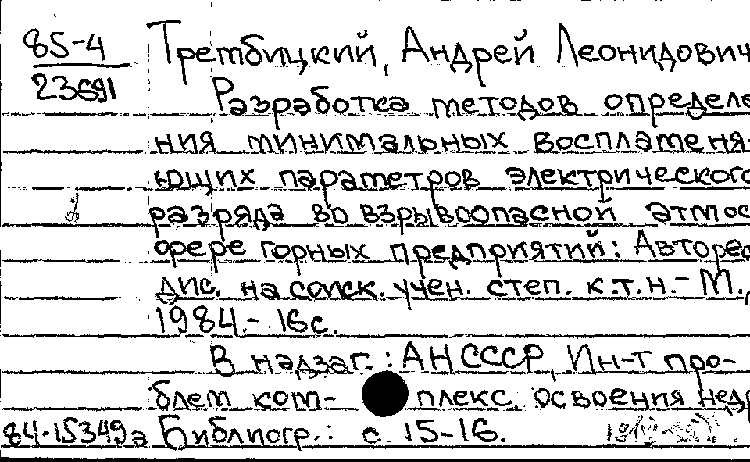 85-4
23691
Трембицкий, Андрей Леонидович
Разработка методов определе
ния минимальных воспламеня-
ющих параметров электрического
разряда во взрывоопасной атмос
фере горных предприятий: Авторе
дис. на соиск. учен. степ. к.т.н.- М.,
1984.- 16с.
В надзаг.: АН СССР, Ин-т про-
блем ком- плекс. освоения недр
84-15349а Библиогр.: с. 15-16.